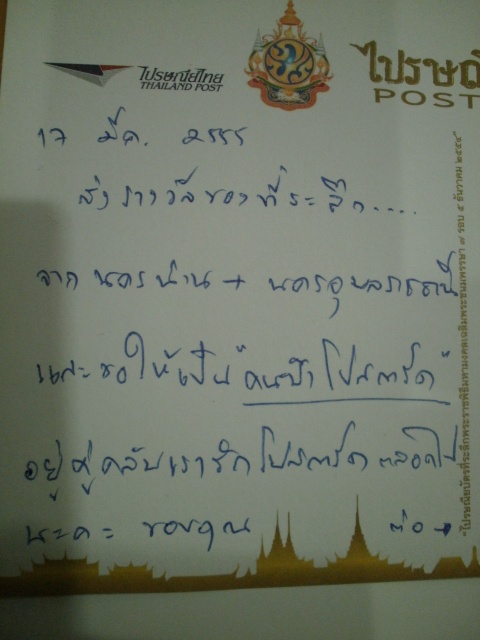 ไปรษณีย์ไทย
THAILAND POST
ไปรษณี
POST
17 มีค. 2555
ส่งรางวัลของที่ระลึก....
จาก นครน่าน + นครอุบลราชธานี
และขอให้เป็น "คนบ้าโปสการ์ด"
อยู่คู่คลับเรารักโปสการ์ดตลอดไป
นะคะ ขอบคุณ ต่อ→
"ไปรษณียบัตรที่ระลึกพระราชพิธีมหามงคลเฉลิมพระชนมพรรษา ๗ รอบ ๕ ธันวาคม ๒๕๕๔"